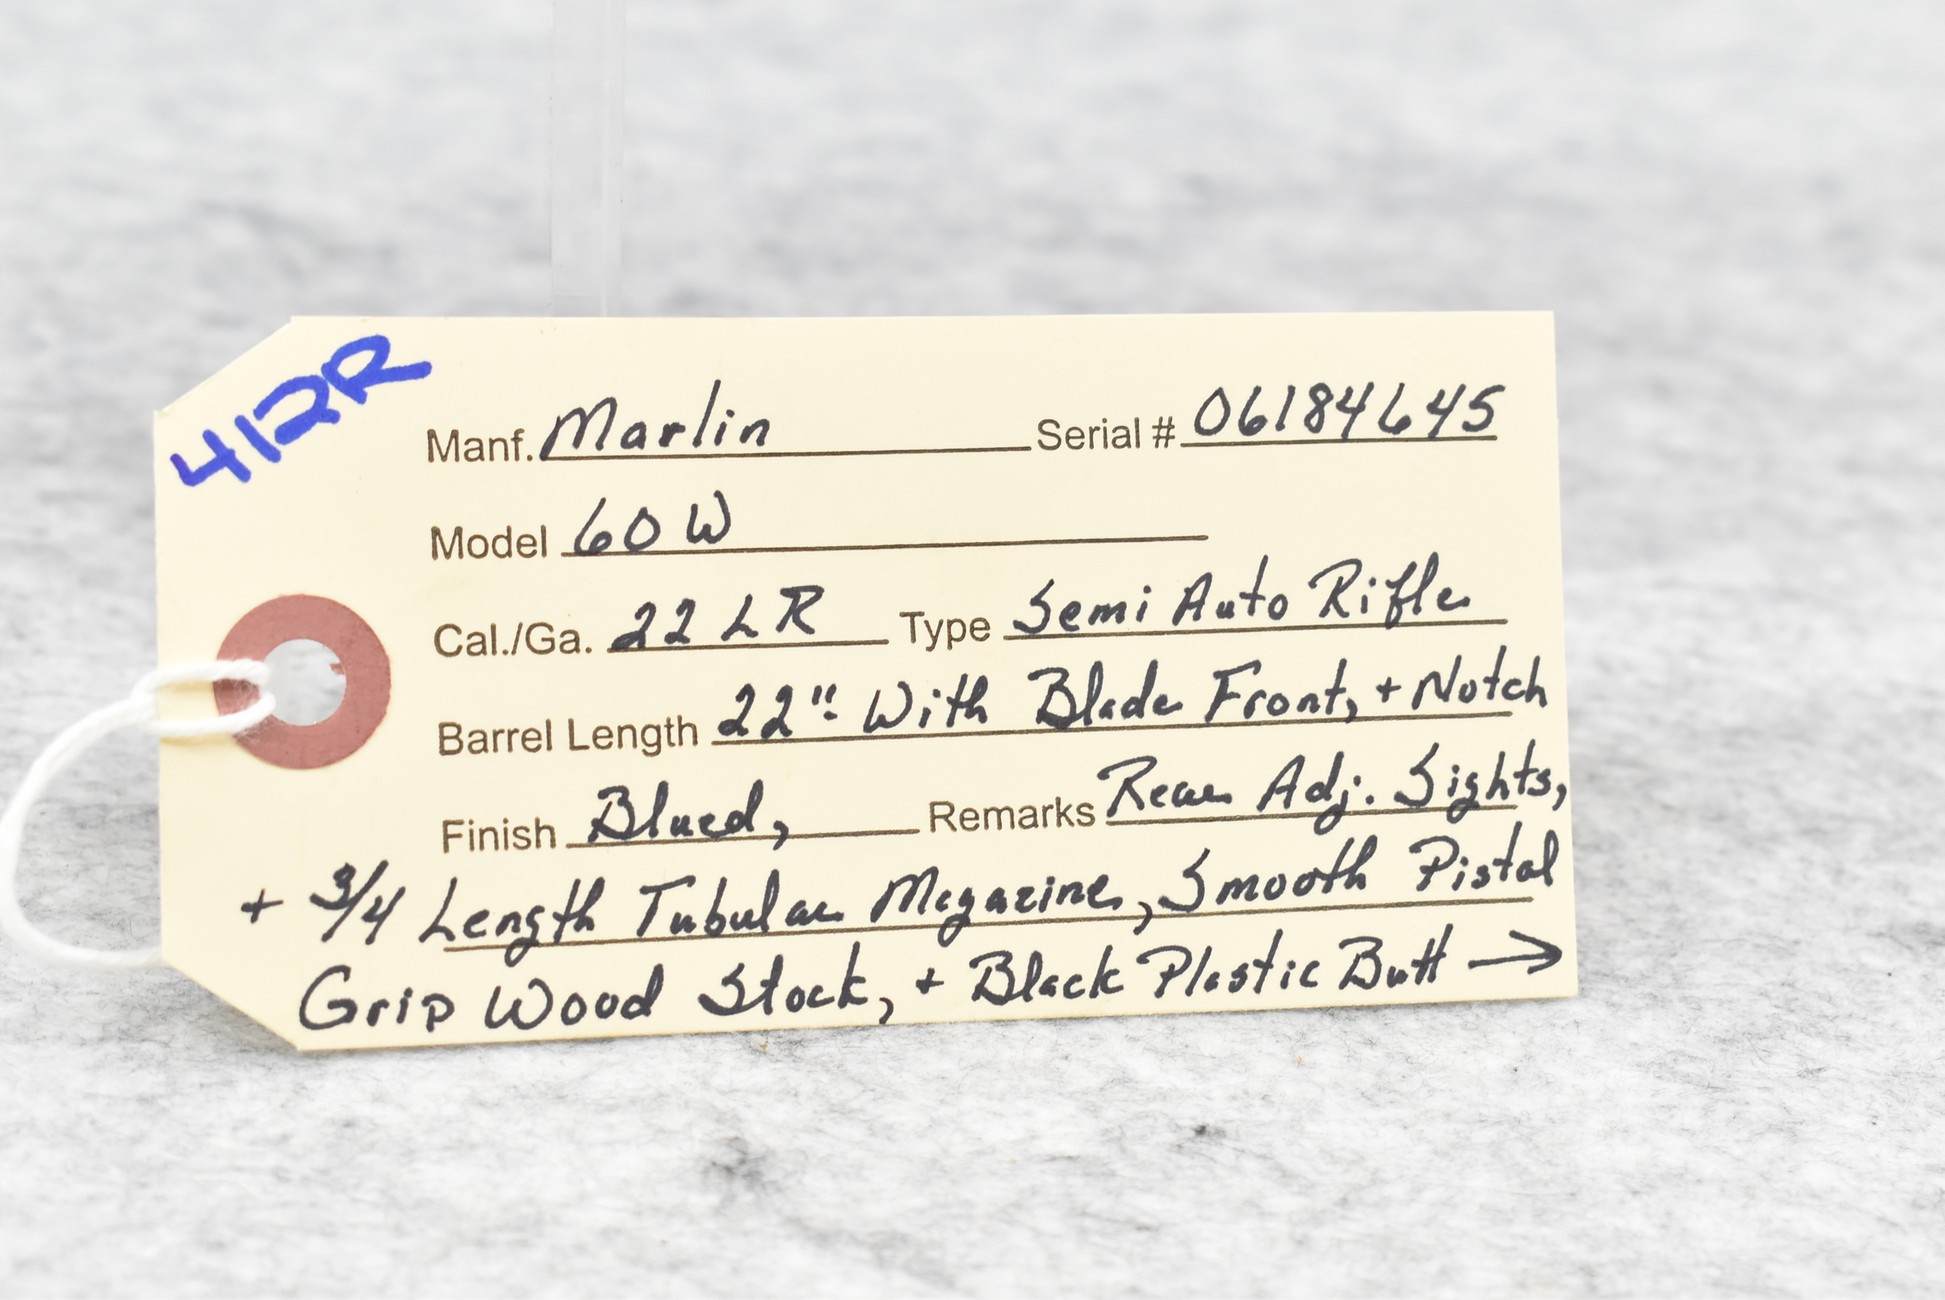 412R
Manf. Marlin Serial # 06184645
Model 60 W
Cal./Ga. 22 LR Type Semi Auto Rifle
Barrel Length 22" With Blade Front, + Notch
Finish Blued, Remarks Rear Adj. Sights,
+ 3/4 Length Tubular Magazine, Smooth Pistol
Grip Wood Stock, + Black Plastic Butt →